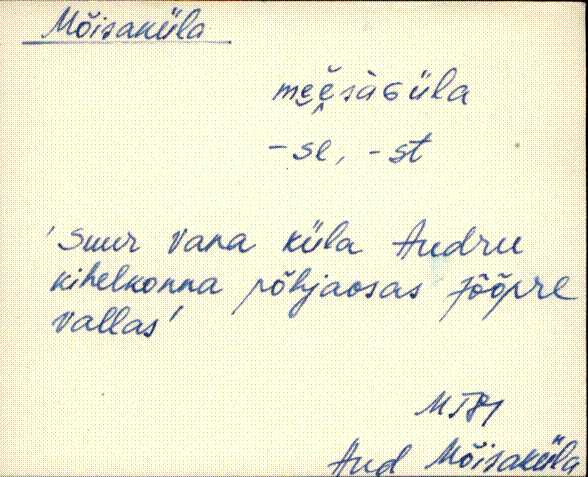 Mõisaküla
meĕsàɢüla
-se, -st
'Suur vana küla Audru
kihelkonna põhjaosas Jõõpre
vallas'
Aud Mõisaküla